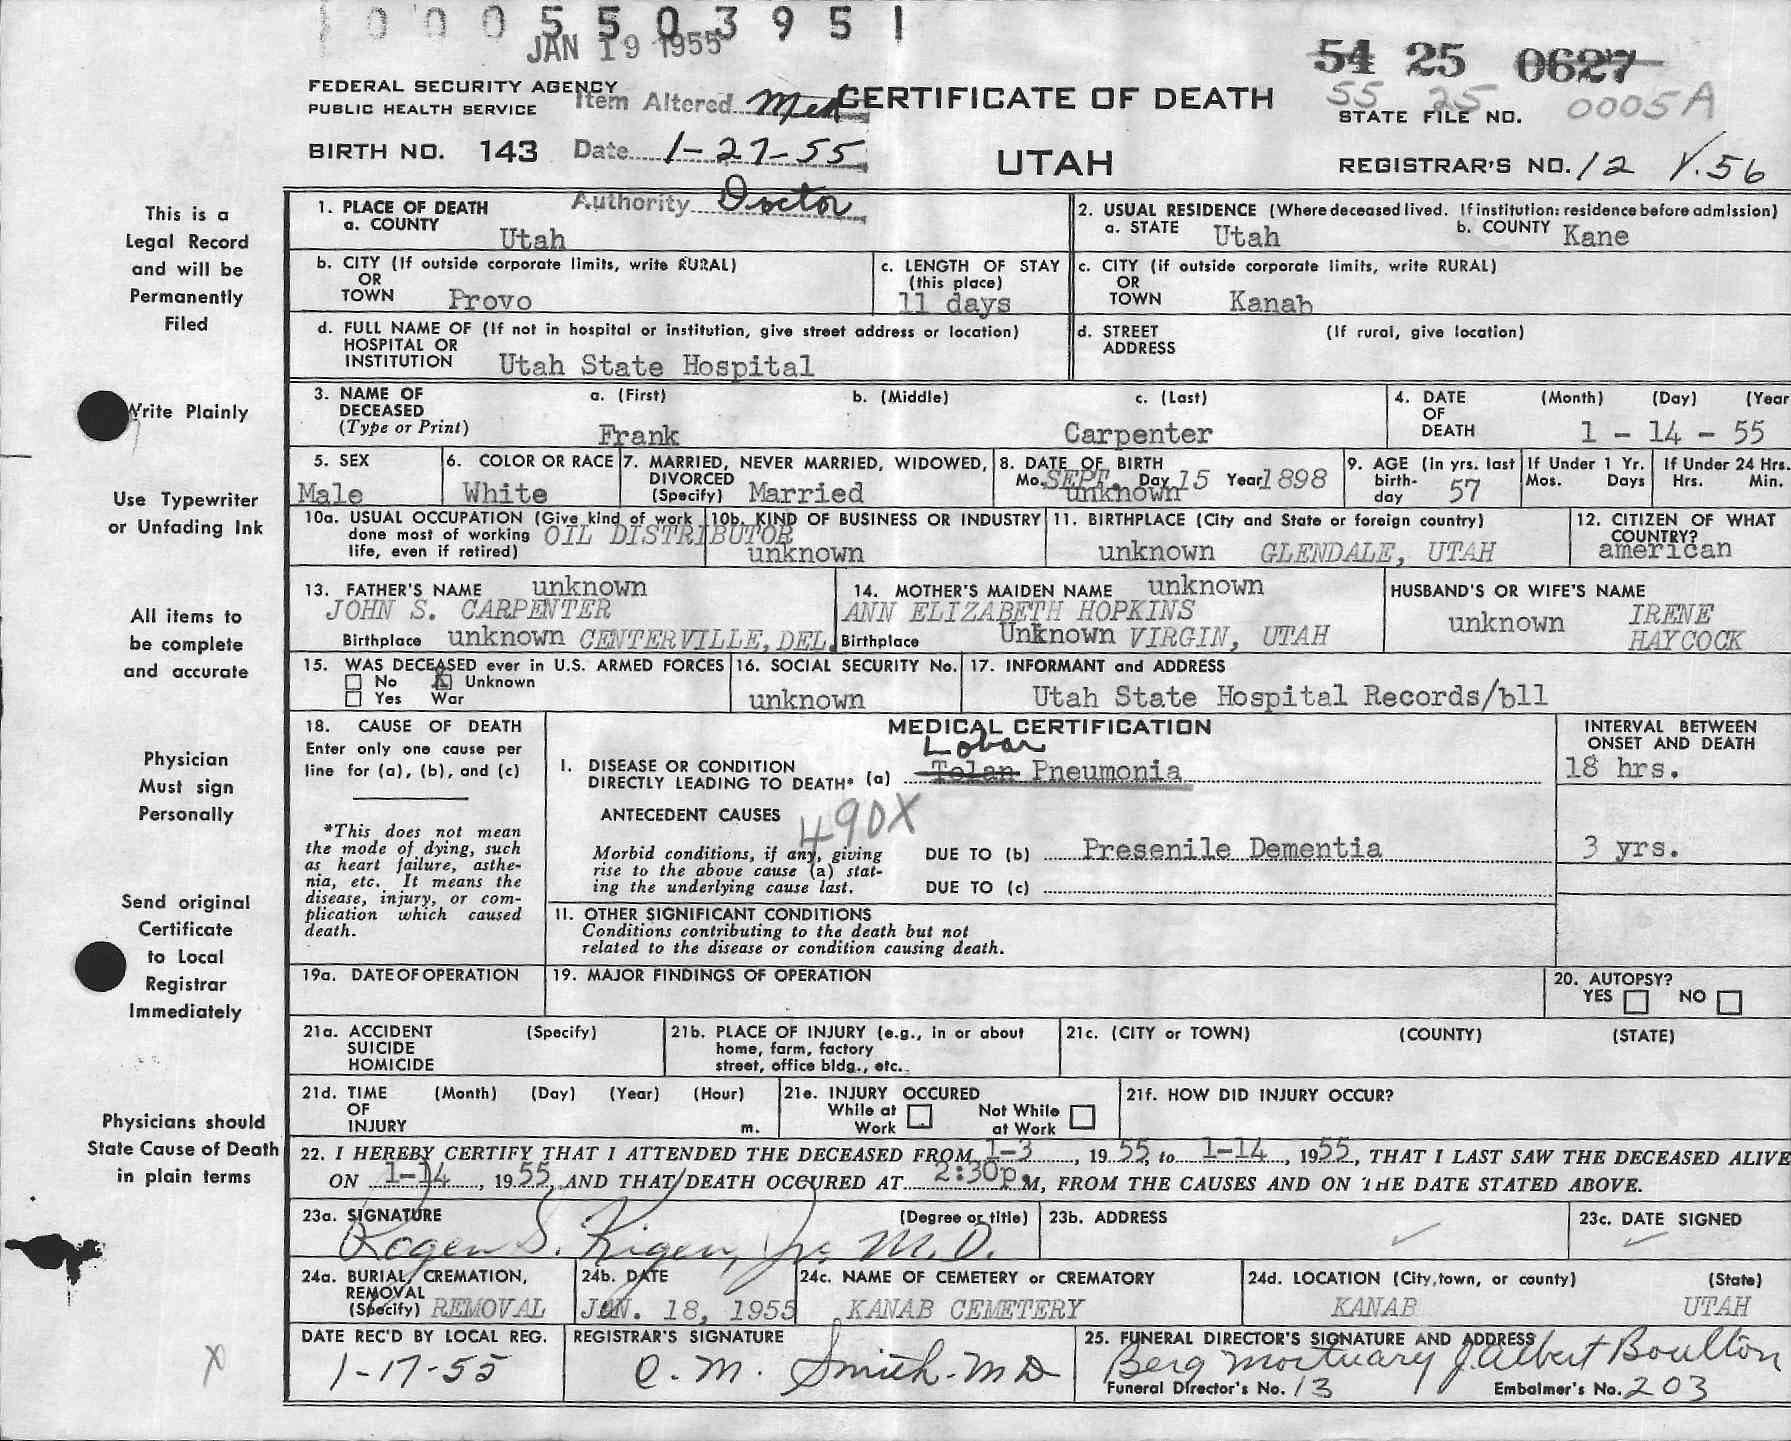 0 0 0 5 5 0 3 9 5 1
JAN 19 1955
54 25 0627
FEDERAL SECURITY AGENCY
PUBLIC HEALTH SERVICE
Item Altered Med
CERTIFICATE OF DEATH
55 25 0005A
STATE FILE NO.
BIRTH NO. 143 Date 1-27-55
UTAH
REGISTRAR'S NO. 12 V.56
Authority Doctor
This is a
Legal Record
and will be
Permanently
Filed
Write Plainly
Use Typewriter
or Unfading Ink
All items to
be complete
and accurate
Physician
Must sign
Personally
Send original
Certificate
to Local
Registrar
Immediately
Physicians should
State Cause of Death
in plain terms
X
1. PLACE OF DEATH
a. COUNTY Utah
2. USUAL RESIDENCE (Where deceased lived. If institution: residence before admission)
a. STATE Utah b. COUNTY Kane
b. CITY (If outside corporate limits, write RURAL)
OR
TOWN Provo
c. LENGTH OF STAY
(this place)
11 days
c. CITY (if outside corporate limits, write RURAL)
OR
TOWN Kanab
d. FULL NAME OF (If not in hospital or institution, give street address or location)
HOSPITAL OR
INSTITUTION Utah State Hospital
d. STREET (If rural, give location)
ADDRESS
3. NAME OF a. (First) b. (Middle) c. (Last)
DECEASED
(Type or Print) Frank Carpenter
4. DATE (Month) (Day) (Year
OF
DEATH 1 - 14 - 55
5. SEX
Male
6. COLOR OR RACE
White
7. MARRIED, NEVER MARRIED, WIDOWED,
DIVORCED
(Specify) Married
8. DATE OF BIRTH
Mo. SEPT. Day 15 Year 1898
unknown
9. AGE (In yrs. last
birth-
day 57
If Under 1 Yr.
Mos. Days
If Under 24 Hrs.
Hrs. Min.
10a. USUAL OCCUPATION (Give kind of work
done most of working
life, even if retired) OIL DISTRIBUTOR
10b. KIND OF BUSINESS OR INDUSTRY
unknown
11. BIRTHPLACE (City and State or foreign country)
unknown GLENDALE, UTAH
12. CITIZEN OF WHAT
COUNTRY?
american
13. FATHER'S NAME unknown
JOHN S. CARPENTER
Birthplace unknown CENTERVILLE, DEL.
14. MOTHER'S MAIDEN NAME unknown
ANN ELIZABETH HOPKINS
Birthplace Unknown VIRGIN, UTAH
HUSBAND'S OR WIFE'S NAME
unknown IRENE
HAYCOCK
15. WAS DECEASED ever in U.S. ARMED FORCES
No X Unknown
Yes War
16. SOCIAL SECURITY No.
unknown
17. INFORMANT and ADDRESS
Utah State Hospital Records/bll
18. CAUSE OF DEATH
Enter only one cause per
line for (a), (b), and (c)
*This does not mean
the mode of dying, such
as heart failure, asthe-
nia, etc. It means the
disease, injury, or com-
plication which caused
death.
MEDICAL CERTIFICATION
Lobar
I. DISEASE OR CONDITION
DIRECTLY LEADING TO DEATH* (a) Tolan Pneumonia
ANTECEDENT CAUSES
490X
Morbid conditions, if any, giving
rise to the above cause (a) stat-
ing the underlying cause last.
DUE TO (b) Presenile Dementia
DUE TO (c)
INTERVAL BETWEEN
ONSET AND DEATH
18 hrs.
3 yrs.
II. OTHER SIGNIFICANT CONDITIONS
Conditions contributing to the death but not
related to the disease or condition causing death.
19a. DATE OF OPERATION
19. MAJOR FINDINGS OF OPERATION
20. AUTOPSY?
YES NO
21a. ACCIDENT (Specify)
SUICIDE
HOMICIDE
21b. PLACE OF INJURY (e.g., in or about
home, farm, factory
street, office bldg., etc.
21c. (CITY or TOWN) (COUNTY) (STATE)
21d. TIME (Month) (Day) (Year) (Hour)
OF
INJURY m.
21e. INJURY OCCURED
While at Work Not While at Work
21f. HOW DID INJURY OCCUR?
22. I HEREBY CERTIFY THAT I ATTENDED THE DECEASED FROM 1-3, 1955, to 1-14, 1955, THAT I LAST SAW THE DECEASED ALIVE
ON 1-14, 1955, AND THAT DEATH OCCURED AT 2:30p.M, FROM THE CAUSES AND ON THE DATE STATED ABOVE.
23a. SIGNATURE (Degree or title)
Rogen S. Kigen, Jr, M.D.
23b. ADDRESS
23c. DATE SIGNED
24a. BURIAL, CREMATION,
REMOVAL
(Specify) REMOVAL
24b. DATE
JAN. 18, 1955
24c. NAME OF CEMETERY or CREMATORY
KANAB CEMETERY
24d. LOCATION (City, town, or county) (State)
KANAB UTAH
DATE REC'D BY LOCAL REG.
1-17-55
REGISTRAR'S SIGNATURE
C. M. Smith-MD
25. FUNERAL DIRECTOR'S SIGNATURE AND ADDRESS
Berg Mortuary J. Albert Boulton
Funeral Director's No. 13 Embalmer's No. 203